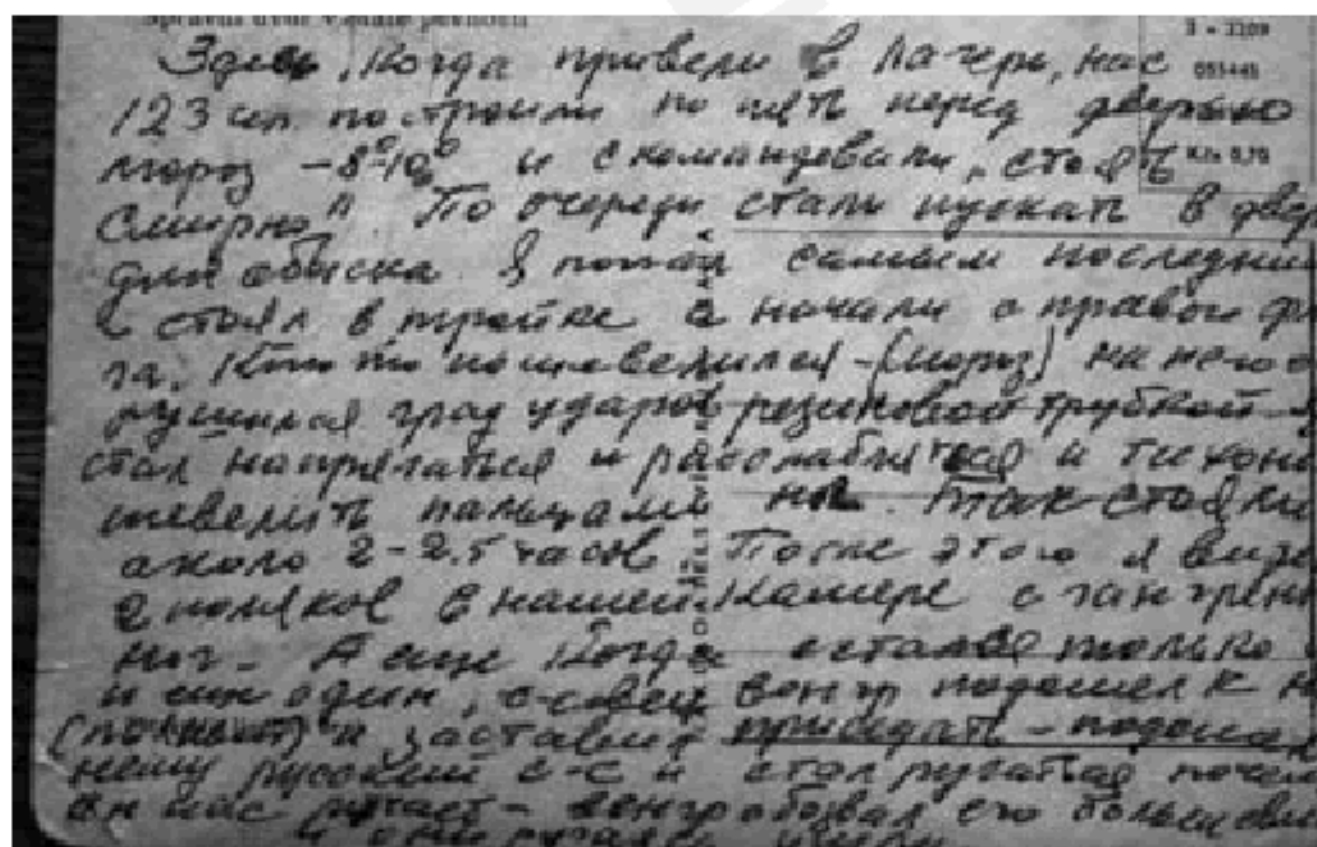 Správní úřad v
3 - 3209
053445
Kčs 0,70
Здесь, когда привели в лагерь, нас
123 чел. построили по пять перед дверью
мороз -8°-10° и скомандовали „стоять
Смирно" По очереди стали пускать в двер
для обыска Я попал самым последним
стоял в тройке а начали с правого ф
га. Кто то пошевелился - (мороз) на него о
рушился град ударов резиновой трубкой я
стал напрягаться и расслабляться и тихонь
шевелить пальцами ног. Так стояли
около 2-2.5 часов. После этого я виде
2 поляков в нашей камере с гангрен
ног. А еще когда остался только
и еще один, с-совец венгр подошел к н
и заставил приседать - подошел
нему русский с-с и стал ругаться поче
он нас пугает - венгр обозвал его большеви
и они ругаясь ушли